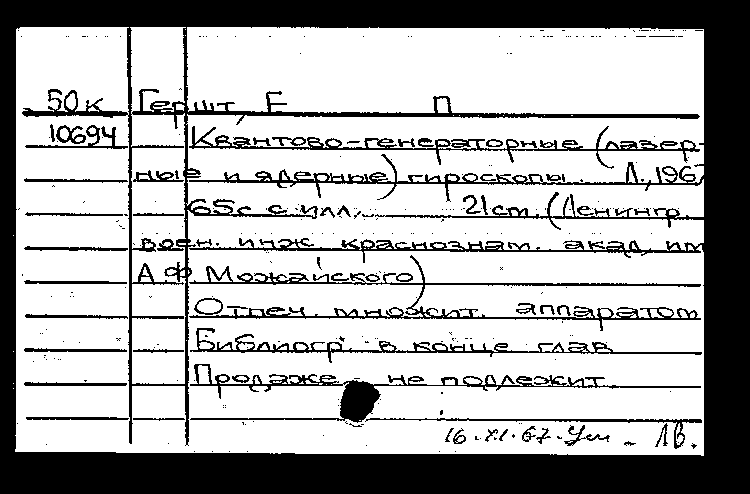 50к Гершт, Е П
10694 Квантово-генераторные (лазер-
ные и ядерные) гироскопы. Л., 1967
65с с илл. 21 ст. (Ленингр.
воен. инж краснознам. акад. им
А Ф Можайского)
Отпеч. множит. аппаратом
Библиогр. в конце глав
Продаже не подлежит.
16.XI.67. ЛВ.